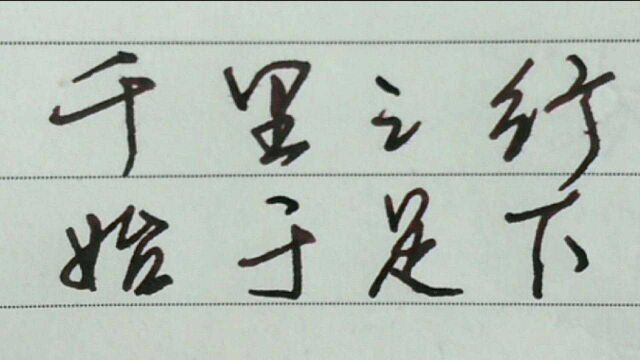 千里之行
始于足下